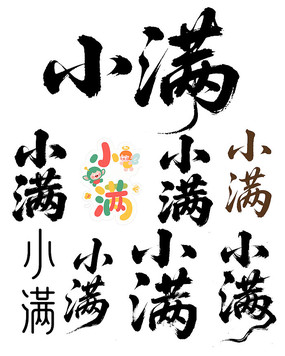 小满
小满
小满
小满
小满
小满
小满
小满
小满